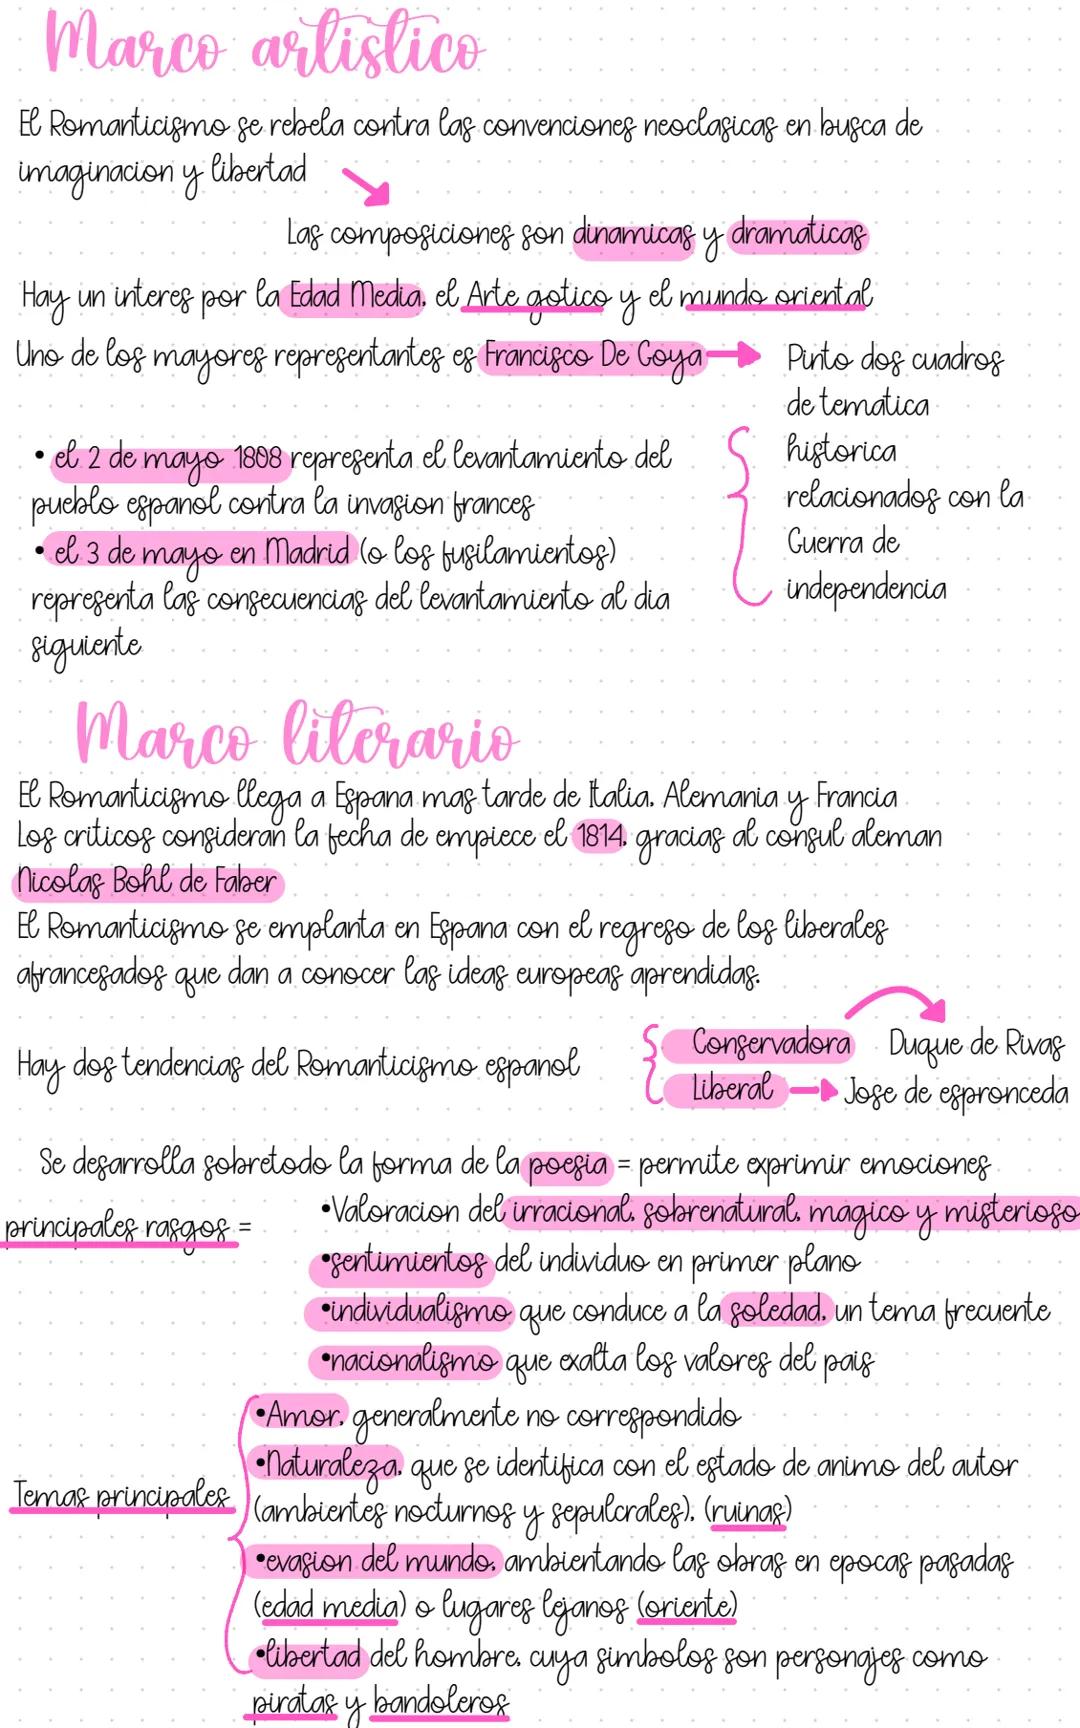 Marco artistico
El Romanticismo se rebela contra las convenciones neoclasicas en busca de
imaginacion y libertad
Las composiciones son dinamicas y dramaticas
Hay un interes por la Edad Media, el Arte gotico y el mundo oriental
Uno de los mayores representantes es Francisco De Goya
Pinto dos cuadros
de tematica
historica
relacionados con la
Guerra de
independencia
• el 2 de mayo 1808 representa el levantamiento del
pueblo espanol contra la invasion frances
• el 3 de mayo en Madrid (o los fusilamientos)
representa las consecuencias del levantamiento al dia
siguiente
Marco literario
El Romanticismo llega a Espana mas tarde de Italia, Alemania y Francia
Los criticos consideran la fecha de empiece el 1814, gracias al consul aleman
Nicolas Bohl de Faber
El Romanticismo se emplanta en Espana con el regreso de los liberales
afrancesados que dan a conocer las ideas europeas aprendidas.
Hay dos tendencias del Romanticismo espanol
Conservadora Duque de Rivas
Liberal Jose de espronceda
Se desarrolla sobretodo la forma de la poesia = permite exprimir emociones
principales rasgos =
•Valoracion del irracional, sobrenatural, magico y misterioso
•sentimientos del individuo en primer plano
•individualismo que conduce a la soledad, un tema frecuente
•nacionalismo que exalta los valores del pais
Temas principales
•Amor, generalmente no correspondido
•Naturaleza, que se identifica con el estado de animo del autor
(ambientes nocturnos y sepulcrales), (ruinas)
•evasion del mundo, ambientando las obras en epocas pasadas
(edad media) o lugares lejanos (oriente)
•libertad del hombre, cuya simbolos son personajes como
piratas y bandoleros